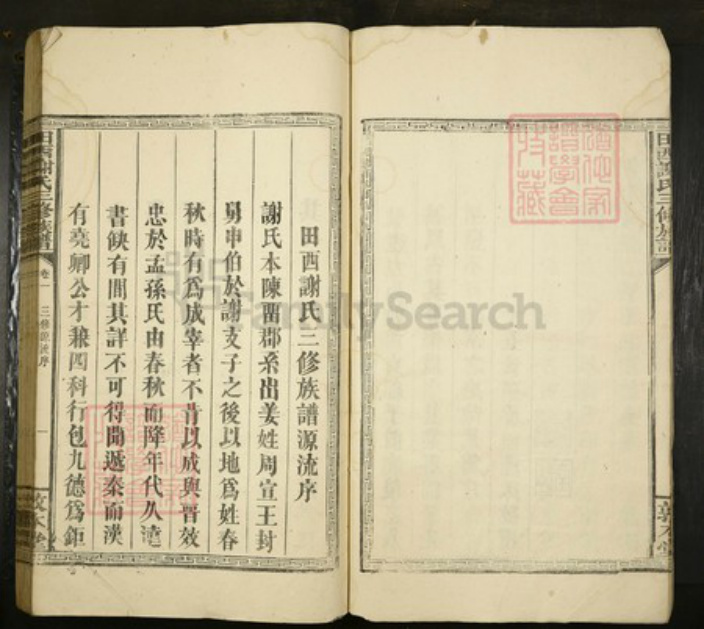 田西謝氏三修族譜源流序
謝氏本陳畱郡系出姜姓周宣王封
舅申伯於謝支子之後以地爲姓春
秋時有爲成宰者不肯以成與晋效
忠於孟孫氏由春秋而降年代久遠
書缺有間其詳不可得聞遞秦而漢
有堯卿公才兼四科行包九德爲鉅
田西謝氏三修族譜
卷一
三修源流序
一
敦本堂
田西謝氏三修族譜
敦本堂
FamilySearch